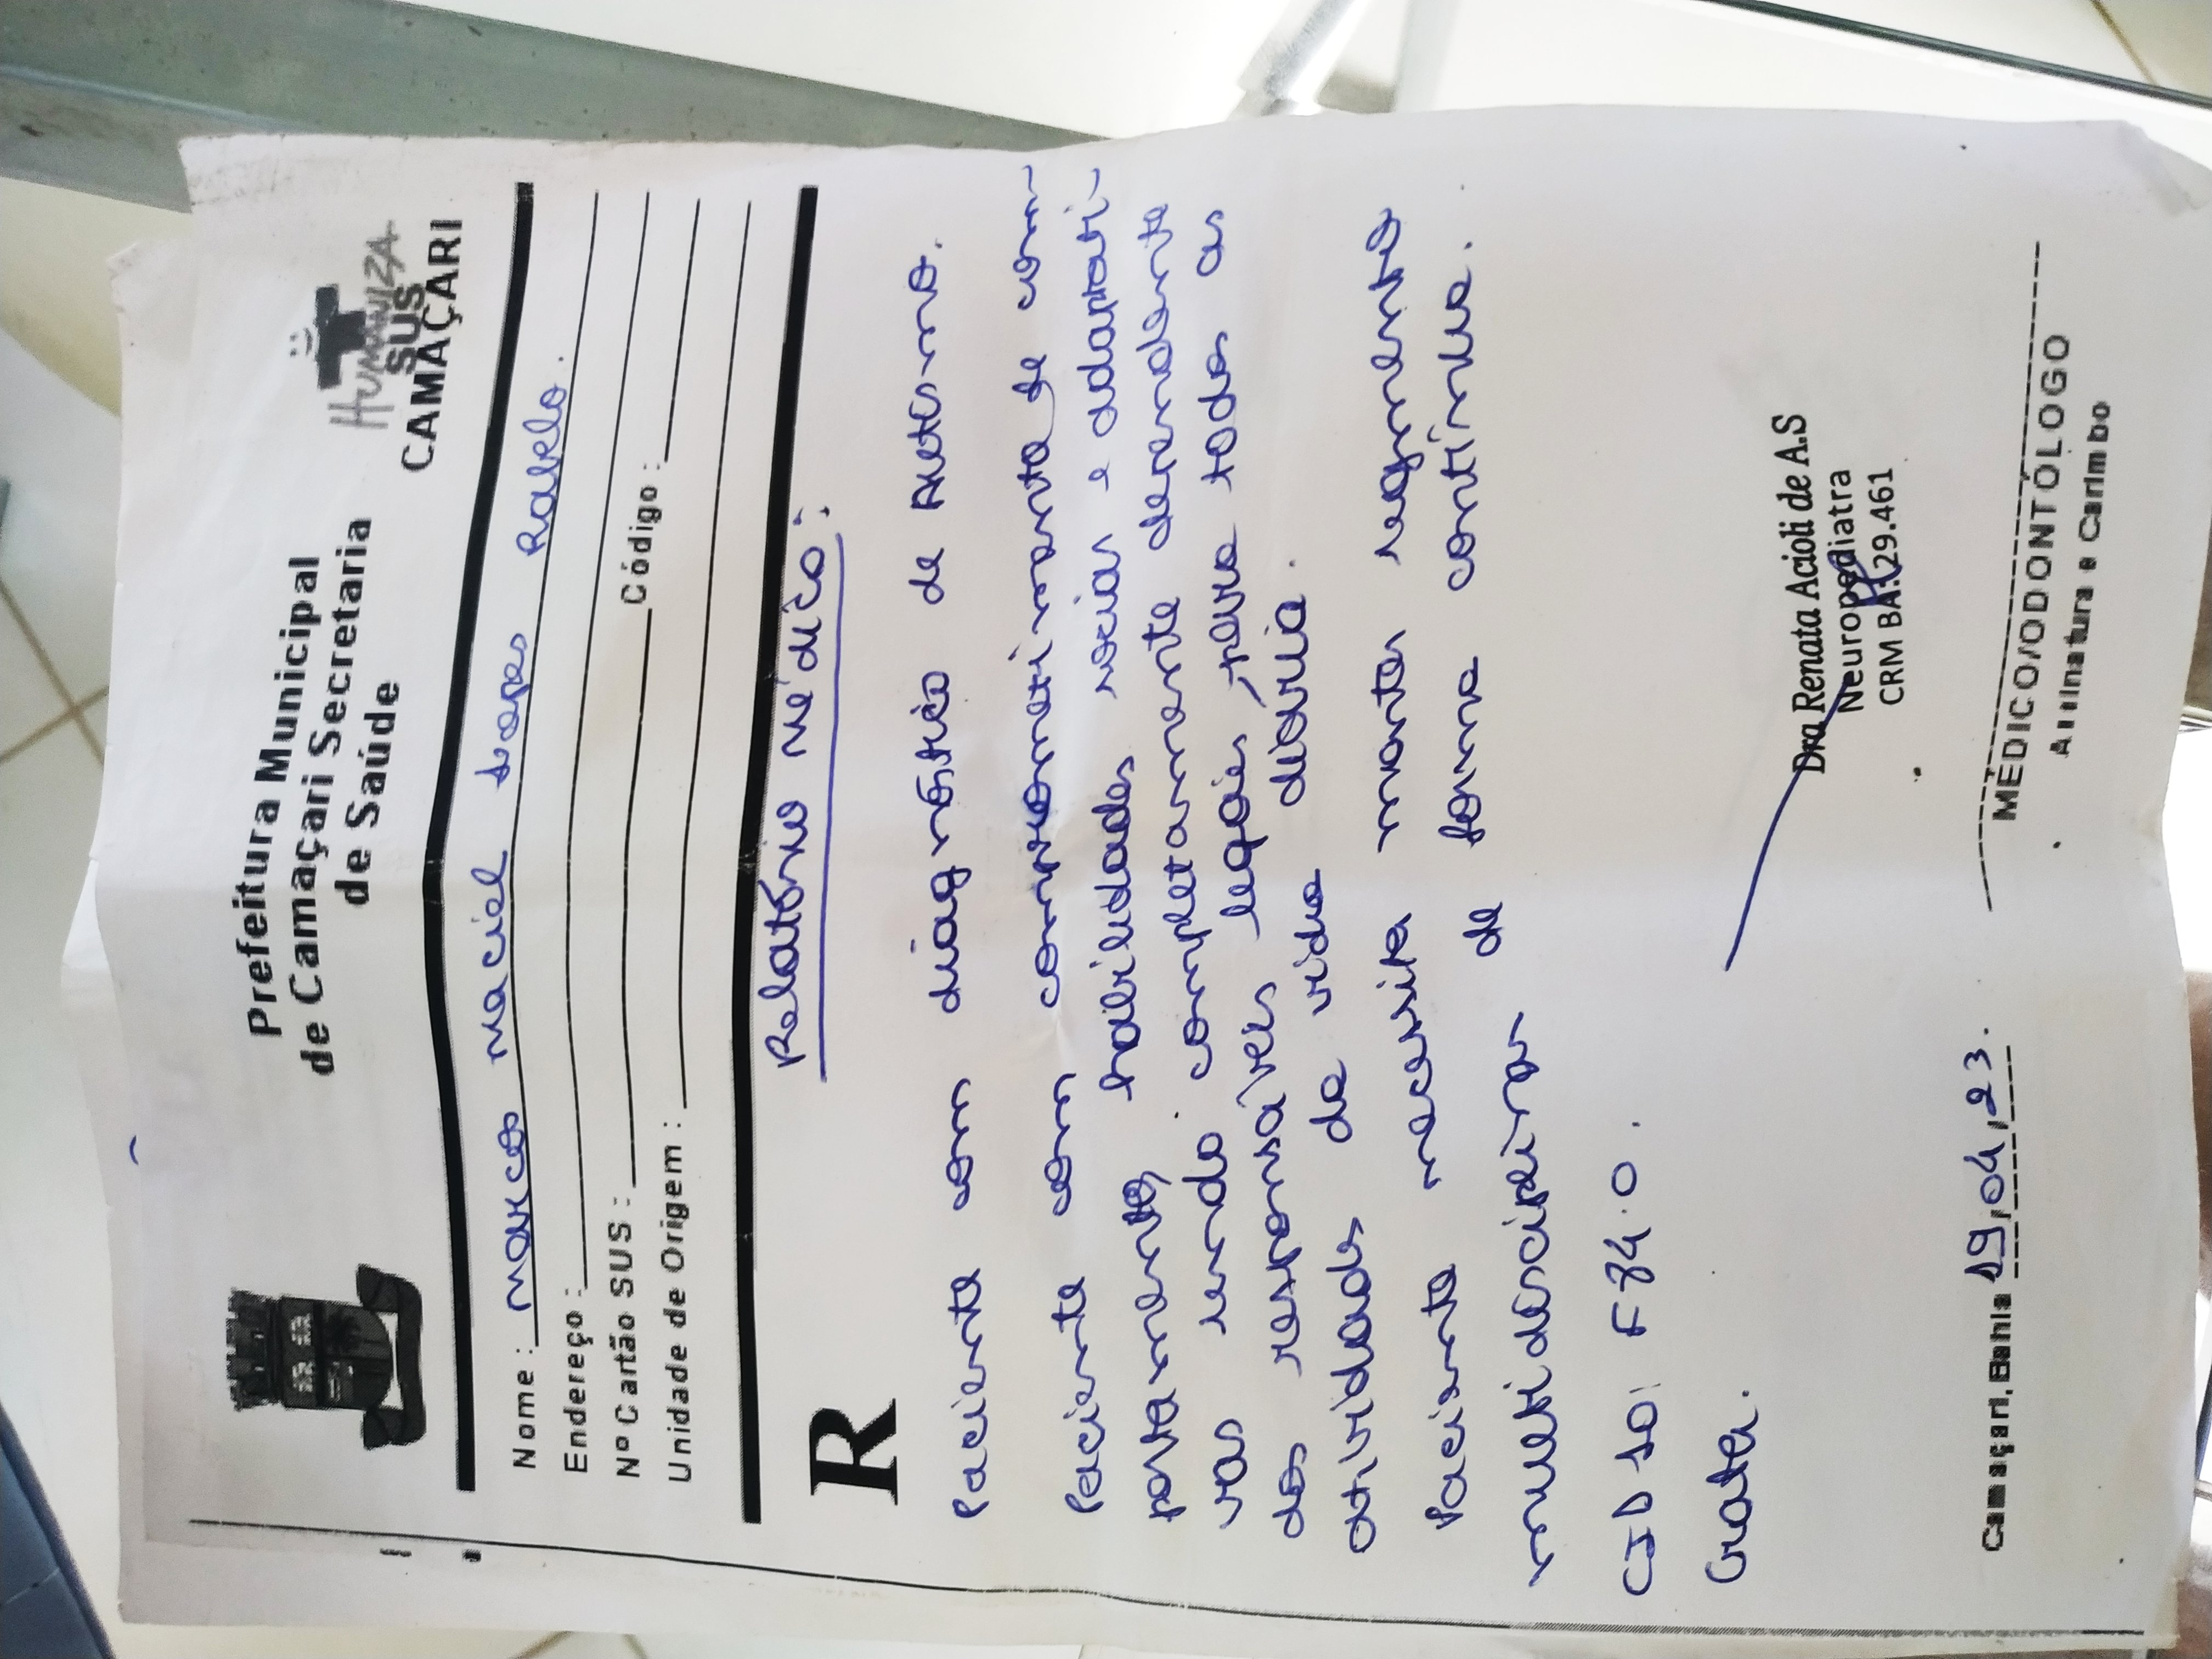 Prefeitura Municipal
de Camaçari Secretaria
de Saúde
HUMANIZA
SUS
CAMAÇARI
Nome: Marcos Maciel Rabelo.
Endereço:
Nº Cartão SUS: Código:
Unidade de Origem:
R
Relatório médico:
Paciente com diagnóstico de Autismo.
Paciente com comprometimento de com-
portamento, habilidades sociais e adaptati-
vas sendo completamente dependente
dos responsáveis legais, para todas as
atividades de vida diária.
Paciente necessita manter segmento
multidisciplinar de forma contínua.
CID 10: F84.0.
Grata.
Camaçari, Bahia 19,04,23.
Dra Renata Acioli de A.S
Neuropediatra
CRM BA: 29.461
MÉDICO/ODONTÓLOGO
Assinatura e Carimbo